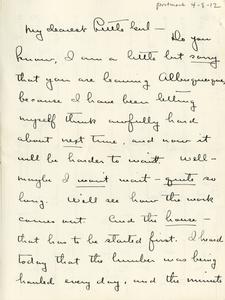 postmark 4-8-12
My dearest Little but — Do you
know, I am a little but sorry
that you are leaving Albuquerque,
because I have been letting
myself think awfully hard
about next time, and now it
will be harder to wait. Well-
maybe I won't wait - quite so
long. We'll see how the work
comes out. And the house -
that has to be started first. I heard
today that the lumber was being
hauled every day, and the minute